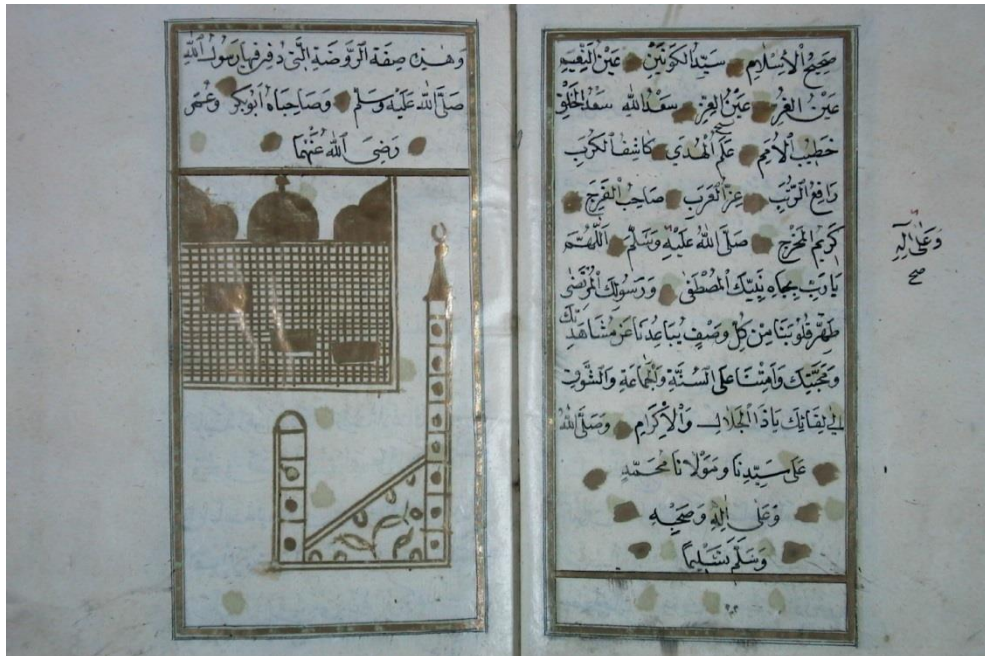 صَحِيحُ الْإِسْلَامِ سَيِّدُ الْكَوْنَيْنِ عَيْنُ النَّعِيمِ
عَيْنُ الْغُرِّ عَيْنُ الْعِزِّ سَعْدُ اللهِ سَعْدُ الْخَلْقِ
خَطِيبُ الْأُمَمِ عَلَمُ الْهُدَى كَاشِفُ الْكُرَبِ
رَافِعُ الرُّتَبِ عِزُّ الْعَرَبِ صَاحِبُ الْفَرَجِ
كَرِيمُ الْمَخْرَجِ صَلَّى اللهُ عَلَيْهِ وَسَلَّمَ اَللّٰهُمَّ
يَا رَبِّ بِجَاهِ نَبِيِّكَ الْمُصْطَفَى وَرَسُولِكَ الْمُرْتَضَى
طَهِّرْ قُلُوبَنَا مِنْ كُلِّ وَصْفٍ يُبَاعِدُنَا عَنْ مُشَاهَدَتِكَ
وَمَحَبَّتِكَ وَأَمِتْنَا عَلَى السُّنَّةِ وَالْجَمَاعَةِ وَالشَّوْقِ
إِلَى لِقَائِكَ يَا ذَا الْجَلَالِ وَالْإِكْرَامِ وَصَلَّى اللهُ
عَلَى سَيِّدِنَا وَمَوْلَانَا مُحَمَّدٍ
وَعَلَى اٰلِهِ وَصَحْبِهِ
وَسَلَّمَ تَسْلِيمًا
وَعَلَى اٰلِهِ
صح
وَهٰذِهِ صِفَةُ الرَّوْضَةِ الَّتِي دُفِنَ فِيهَا رَسُولُ اللهِ
صَلَّى اللهُ عَلَيْهِ وَسَلَّمَ وَصَاحِبَاهُ أَبُو بَكْرٍ وَعُمَرُ
رَضِيَ اللهُ عَنْهُمَا